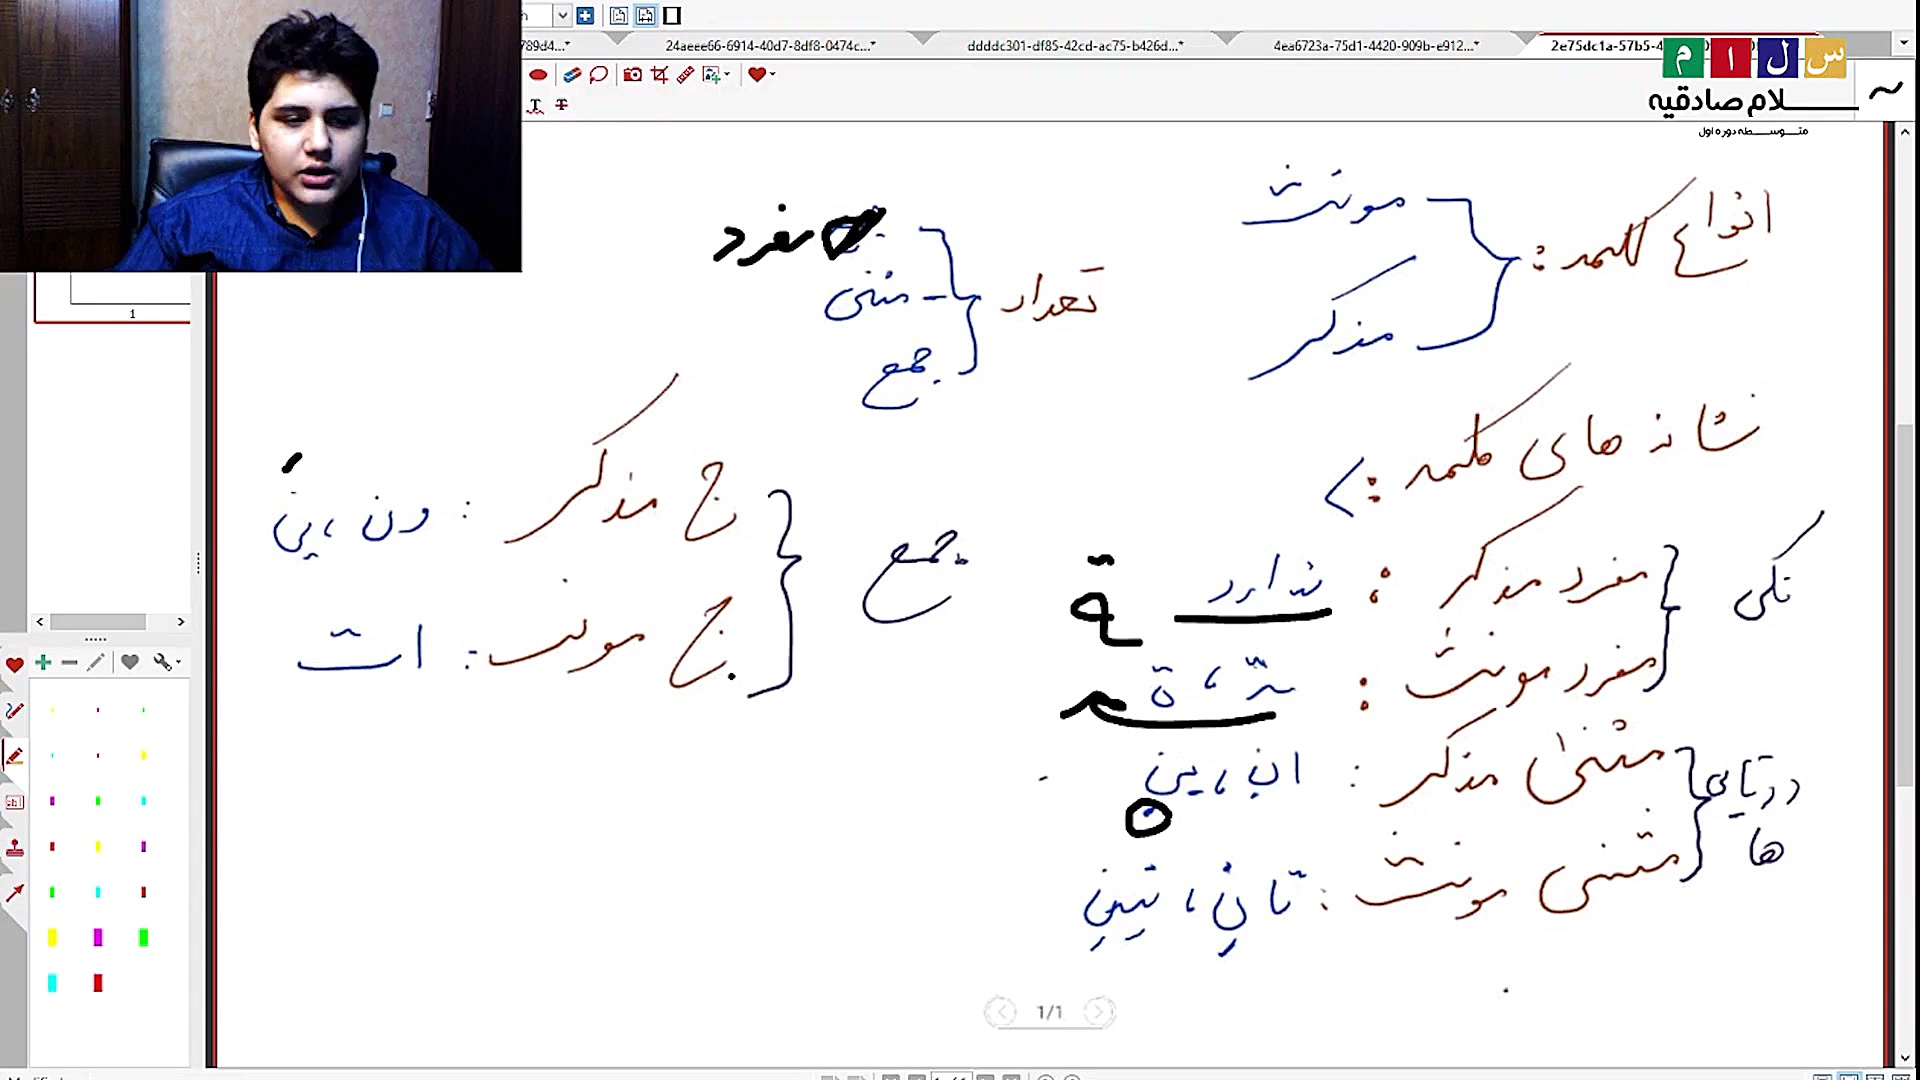 789d4...*
24aeee66-6914-40d7-8df8-0474c...*
ddddc301-df85-42cd-ac75-b426d...*
4ea6723a-75d1-4420-909b-e912...*
2e75dc1a-57b5-4
س ل ا م
سلام صادقیه
متوسطه دوره اول
انواع کلمه :
مونث
مذکر
تعداد
مفرد
مثنی
جمع
نشانه های کلمه :
تکی
مفرد مذکر : ندارد
ة
مفرد مونث : ـة ، ة
دوتایی ها
مثنی مذکر : ان ، ین
مثنی مونث : تانِ ، تینِ
جمع
ج مذکر : ون ، ین
ج مونث : ات
1
1/1